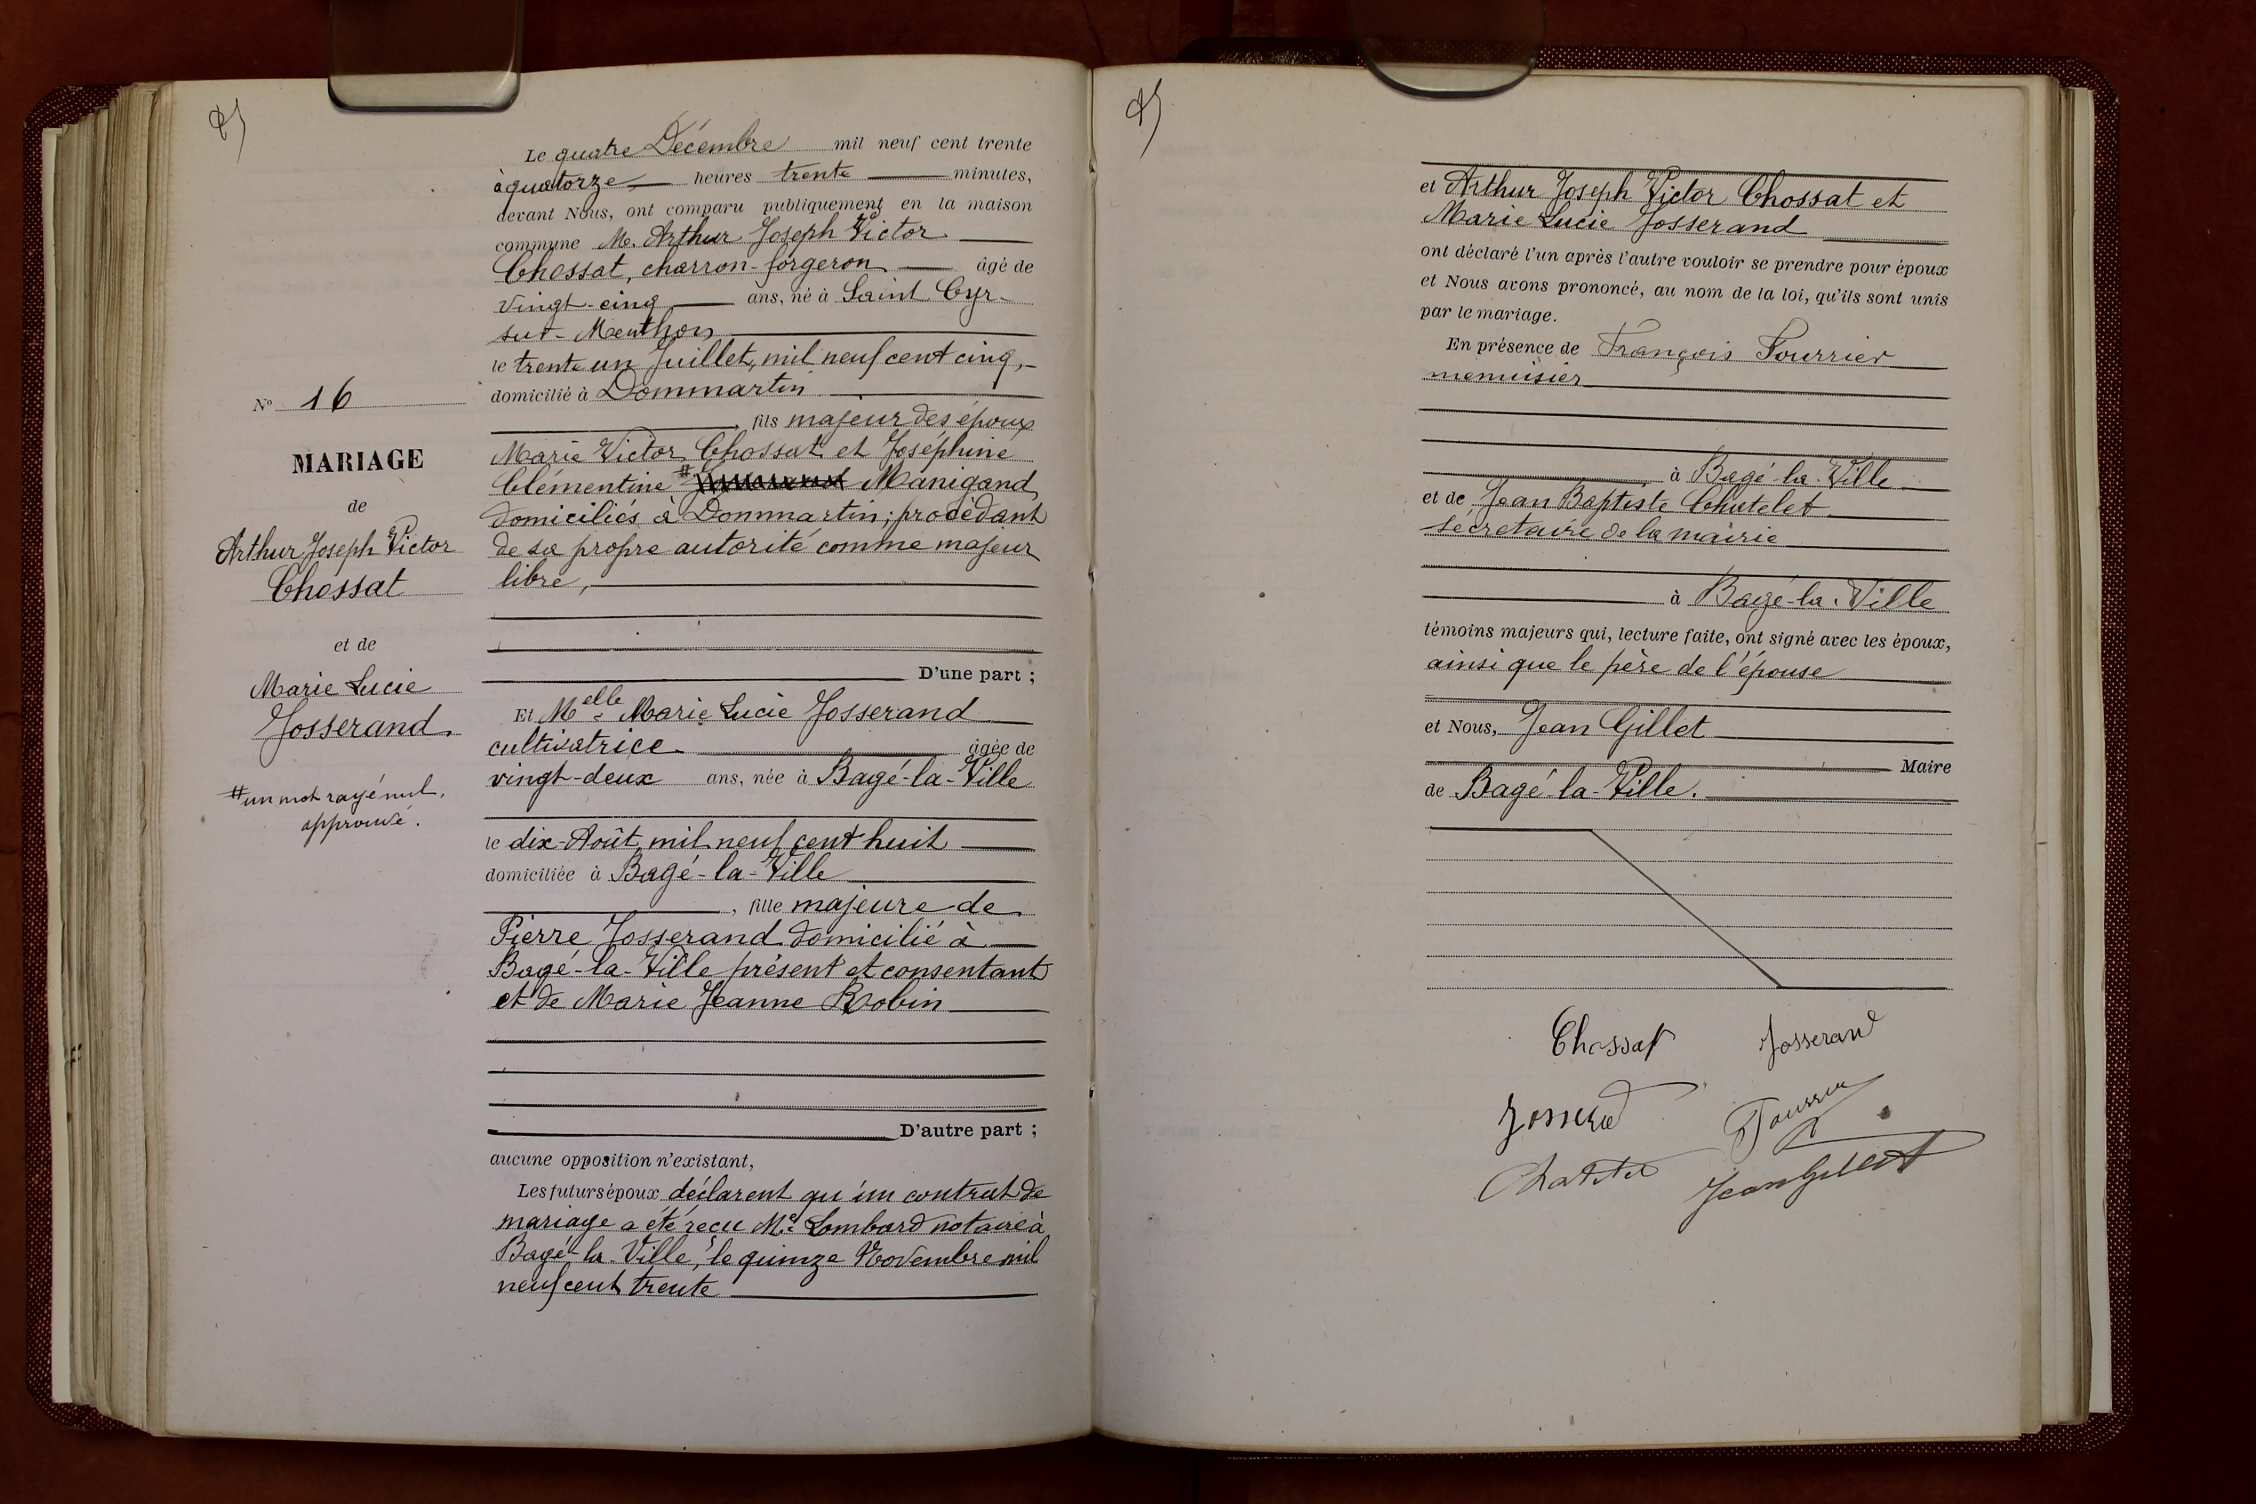 Le quatre Décembre mil neuf cent trente
à quatorze heures trente minutes,
devant Nous, ont comparu publiquement en la maison
commune Mr. Arthur Joseph Victor
Chossat, charron-forgeron âgé de
vingt-cinq ans, né à Saint Cyr-
sur-Menthon
le trente un Juillet, mil neuf cent cinq,
domicilié à Dommartin
, fils majeur des époux
Marie Victor Chossat et Joséphine
Clémentine # Manigand,
domiciliés à Dommartin; procédant
de sa propre autorité comme majeur
libre,
D'une part ;
Et Melle Marie Lucie Josserand
cultivatrice âgée de
vingt-deux ans, née à Bagé-la-Ville
le dix-Août mil neuf cent huit
domiciliée à Bagé-la-Ville
, fille majeure de
Pierre Josserand domicilié à
Bagé-la-Ville présent et consentant
et de Marie Jeanne Robin
D'autre part ;
aucune opposition n'existant,
Les futurs époux déclarent qu'un contrat de
mariage a été reçu Me Lombard notaire à
Bagé-la-Ville, le quinze Novembre mil
neuf cent trente
No 16
MARIAGE
de
Arthur Joseph Victor
Chossat
et de
Marie Lucie
Josserand.
# un mot rayé nul.
approuvé.
et Arthur Joseph Victor Chossat et
Marie Lucie Josserand
ont déclaré l'un après l'autre vouloir se prendre pour époux
et Nous avons prononcé, au nom de la loi, qu'ils sont unis
par le mariage.
En présence de François Fourrier
menuisier
à Bagé-la-Ville
et de Jean Baptiste Chatelet
secretaire de la mairie
à Bagé-la-Ville
témoins majeurs qui, lecture faite, ont signé avec les époux,
ainsi que le père de l'épouse
et Nous, Jean Gillet
Maire
de Bagé-la-Ville.
Chossat Josserand
Fourrier
Jean Gillet